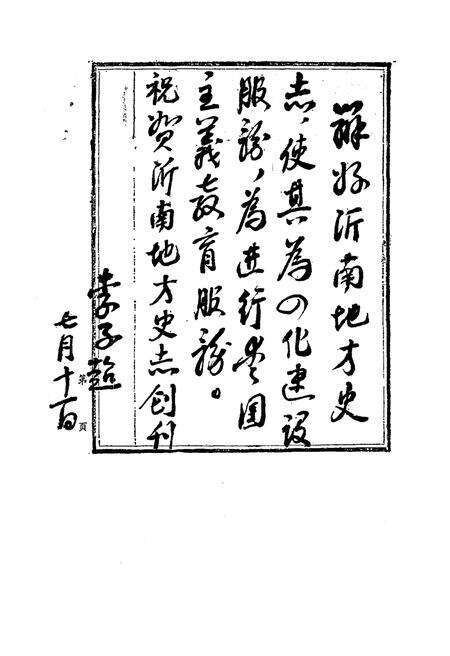 办好沂南地方史
志，使其为四化建设
服务，为进行爱国
主义教育服务。
祝贺沂南地方史志创刊
李子超
七月十一日
第 页